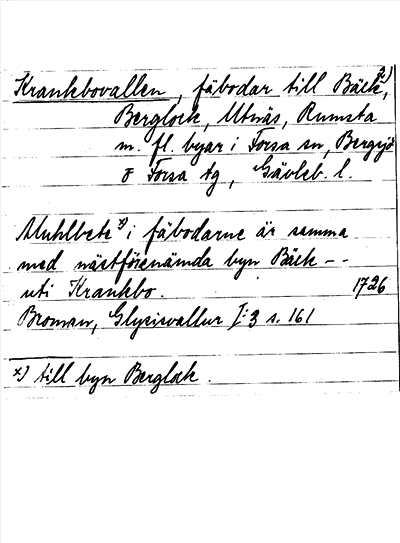 Krankbovallen, fäbodar till Bäck, 2)
Berglock, Utnäs, Rumsta
m. fl. byar i Forsa sn, Bergsjö
o Forsa tg, Gävleb. l.
Muhlbete x) i fäbodarne är samma
med nästförenämda byn Bäck - -
uti Krankbo. 1726
Broman, Glysisvallur I:3 s. 161
x) till byn Berglock.